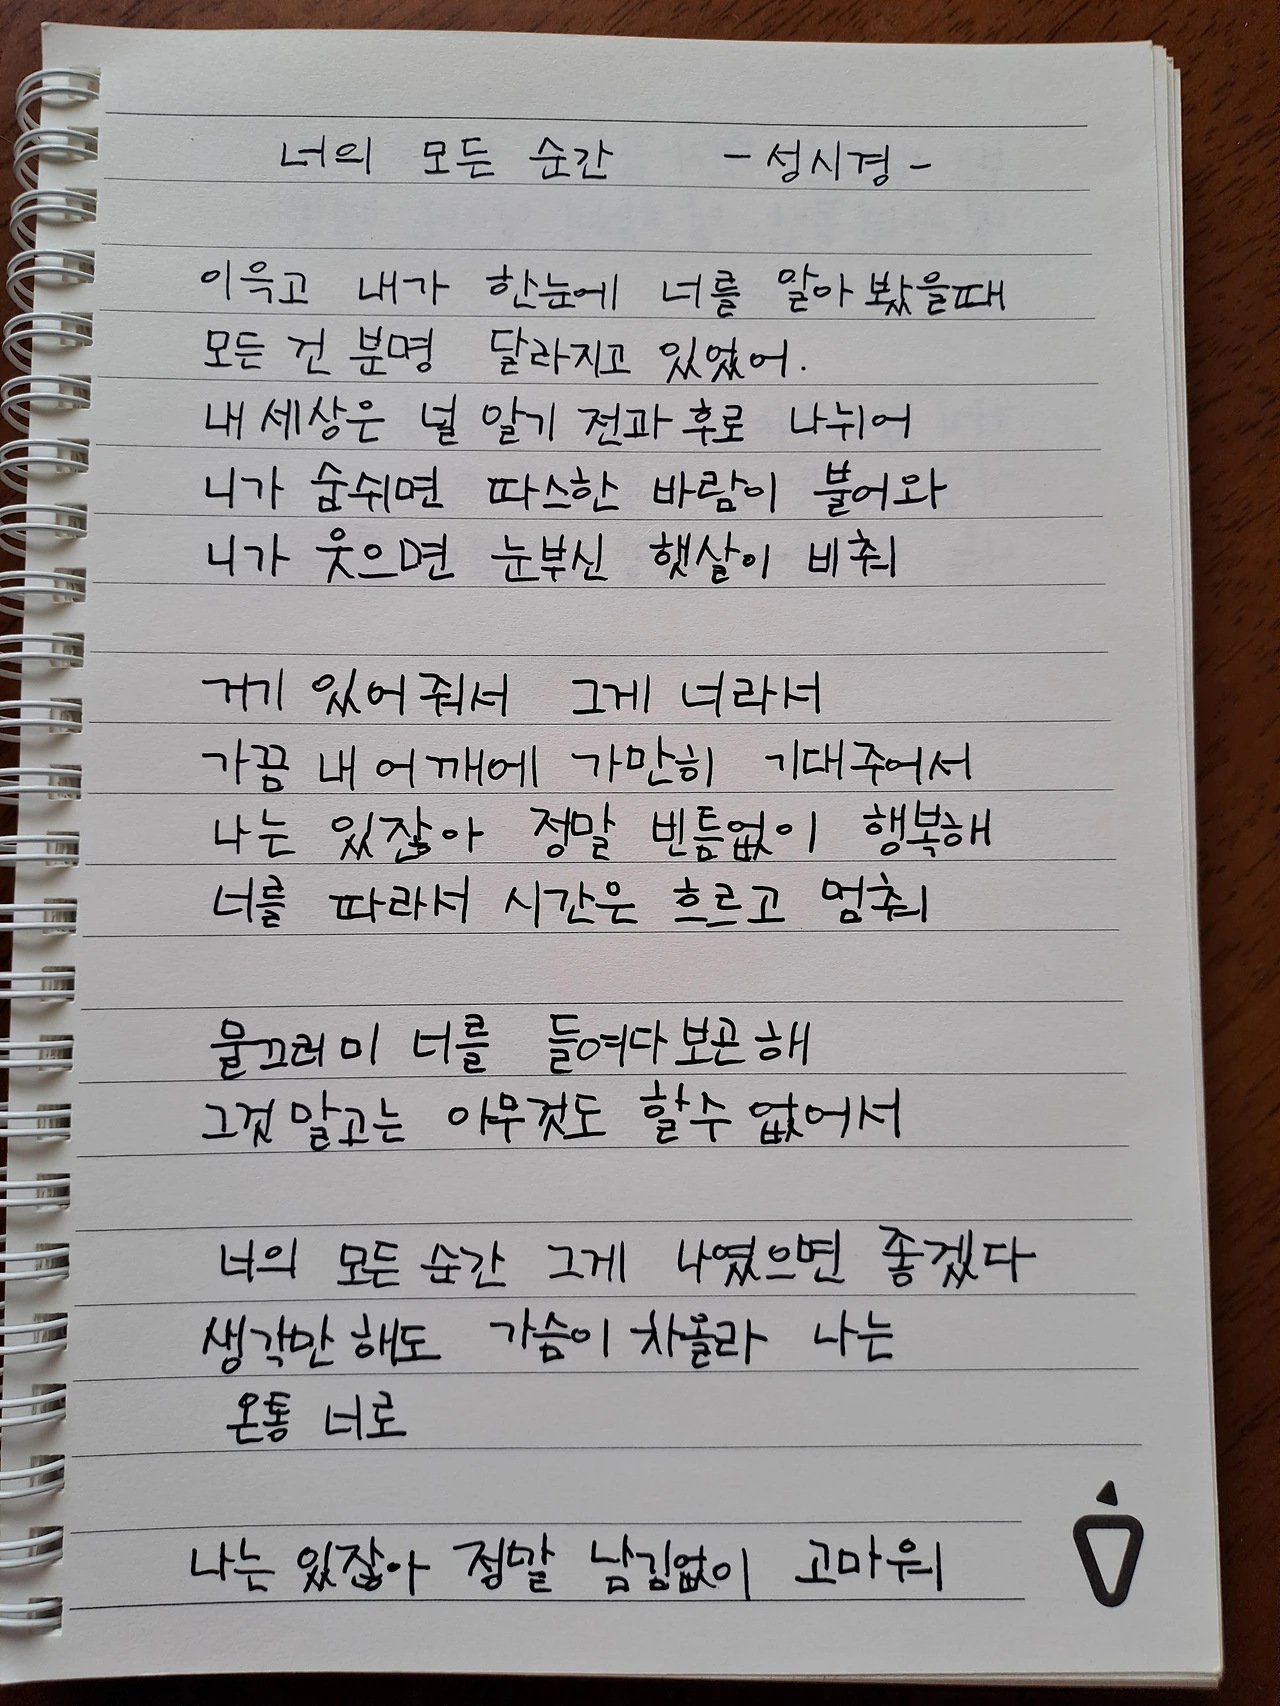 너의 모든 순간 -성시경-
이윽고 내가 한눈에 너를 알아 봤을때
모든 건 분명 달라지고 있었어.
내 세상은 널 알기 전과 후로 나뉘어
니가 숨쉬면 따스한 바람이 불어와
니가 웃으면 눈부신 햇살이 비춰
거기 있어줘서 그게 너라서
가끔 내 어깨에 가만히 기대주어서
나는 있잖아 정말 빈틈없이 행복해
너를 따라서 시간은 흐르고 멈춰
물끄러미 너를 들여다 보곤 해
그것 말고는 아무것도 할수 없어서
너의 모든 순간 그게 나였으면 좋겠다
생각만 해도 가슴이 차올라 나는
온통 너로
나는 있잖아 정말 남김없이 고마워